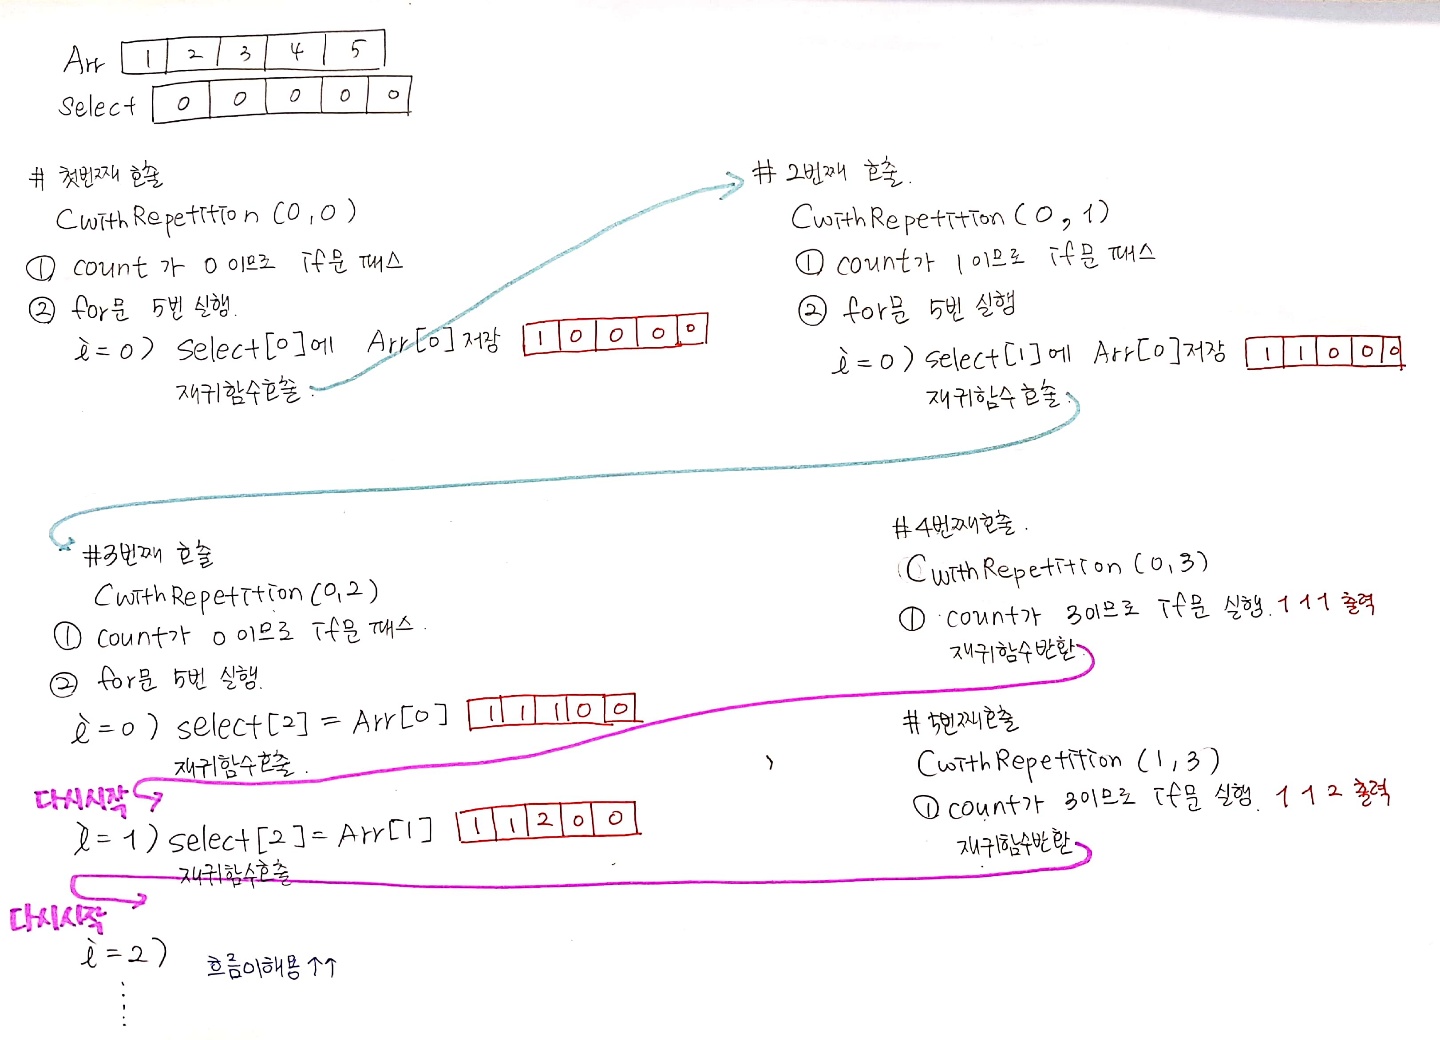 Arr 1 2 3 4 5
Select 0 0 0 0 0
# 첫번째 호출
CwithRepetition (0,0)
① count 가 0 이므로 if문 패스
② for문 5번 실행.
i=0) select[0]에 Arr[0]저장 1 0 0 0 0
재귀함수호출.
# 2번째 호출.
CwithRepetition (0,1)
① count가 1 이므로 if문 패스
② for문 5번 실행
i=0) select[1]에 Arr[0]저장 1 1 0 0 0
재귀함수호출.
#3번째 호출
CwithRepetition(0,2)
① count가 0 이므로 if문 패스.
② for문 5번 실행.
i=0) select[2] = Arr[0] 1 1 1 0 0
재귀함수호출.
다시시작
i=1) select[2] = Arr[1] 1 1 2 0 0
재귀함수호출
다시시작
i=2)
흐름이해용 ↑↑
#4번째호출.
CwithRepetition (0,3)
① count가 3이므로 if문 실행. 1 1 1 출력
재귀함수반환.
# 5번째호출
CwithRepetition (1,3)
① count가 3이므로 if문 실행. 1 1 2 출력
재귀함수반환.